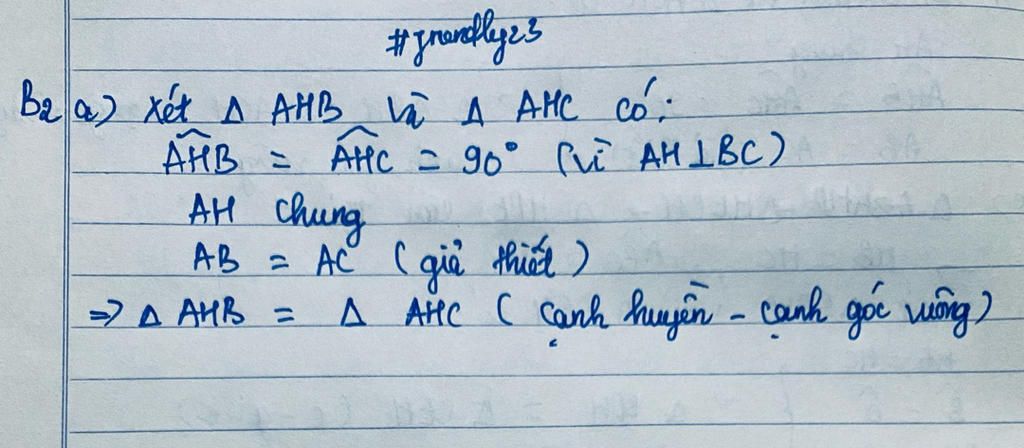 #jrandly23
B2 a) Xét Δ AHB và Δ AHC có:
\widehat{AHB} = \widehat{AHC} = 90° (vì AH ⊥ BC)
AH chung
AB = AC (giả thiết)
=> Δ AHB = Δ AHC (cạnh huyền - cạnh góc vuông)